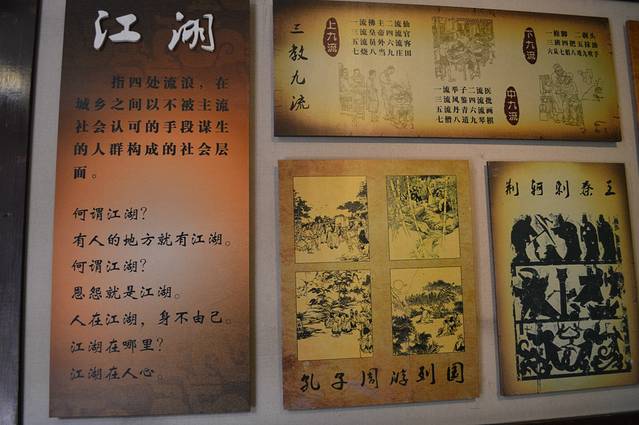 江湖
指四处流浪，在
城乡之间以不被主流
社会认可的手段谋生
的人群构成的社会层
面。
何谓江湖？
有人的地方就有江湖。
何谓江湖？
恩怨就是江湖。
人在江湖，身不由己。
江湖在哪里？
江湖在人心。
三教九流
上九流
一流佛主二流仙
三流皇帝四流官
五流员外六流客
七烧八当九庄田
中九流
一流举子二流医
三流风鉴四流批
五流丹青六流画
七僧八道九琴棋
下九流
一修脚 二剃头
三班四把五抹油
六从七娼八戏九吹手
孔子周游列国
荆轲刺秦王